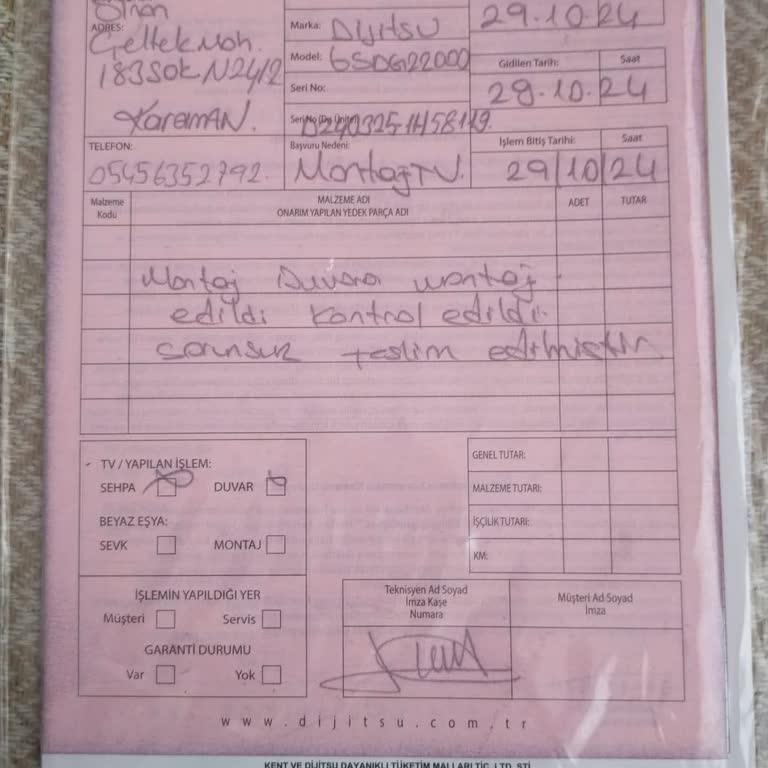 Sinan
ADRES:
Geltek Mah.
1835 OK N24/2
Karaman.
TELEFON:
05456352792.
Marka: Dijitsu
Model: 65DG22000
Seri No:
Seri No (Dış Ünite):
Başvuru Nedeni:
Montaj TV.
29.10.24
Gidilen Tarih: Saat
29.10.24
İşlem Bitiş Tarihi: Saat
29/10/24
Malzeme Kodu
MALZEME ADI
ONARIM YAPILAN YEDEK PARÇA ADI
ADET
TUTAR
Montaj Duvara montaj
edildi kontrol edildi.
sorunsuz teslim edilmiştir.
TV / YAPILAN İŞLEM:
SEHPA
DUVAR
BEYAZ EŞYA:
SEVK
MONTAJ
GENEL TUTAR:
MALZEME TUTARI:
İŞÇİLİK TUTARI:
KM:
İŞLEMİN YAPILDIĞI YER
Müşteri
Servis
GARANTİ DURUMU
Var
Yok
Teknisyen Ad Soyad
İmza Kaşe
Numara
Müşteri Ad Soyad
İmza
www.dijitsu.com.tr
KENT VE DİJİTSU DAYANIKLI TÜKETİM MALLARI TİC. LTD. ŞTİ.